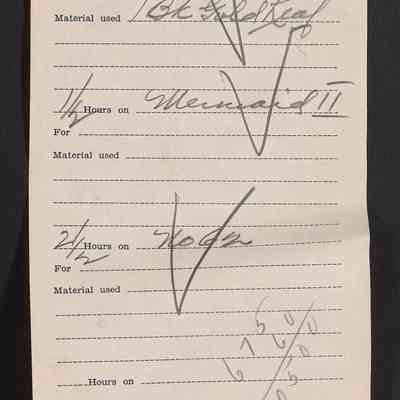 Material used 1 Bk Gold Leaf
1 1/2 Hours on Mermaid II
For
Material used
2 1/2 Hours on
For
Material used
Hours on